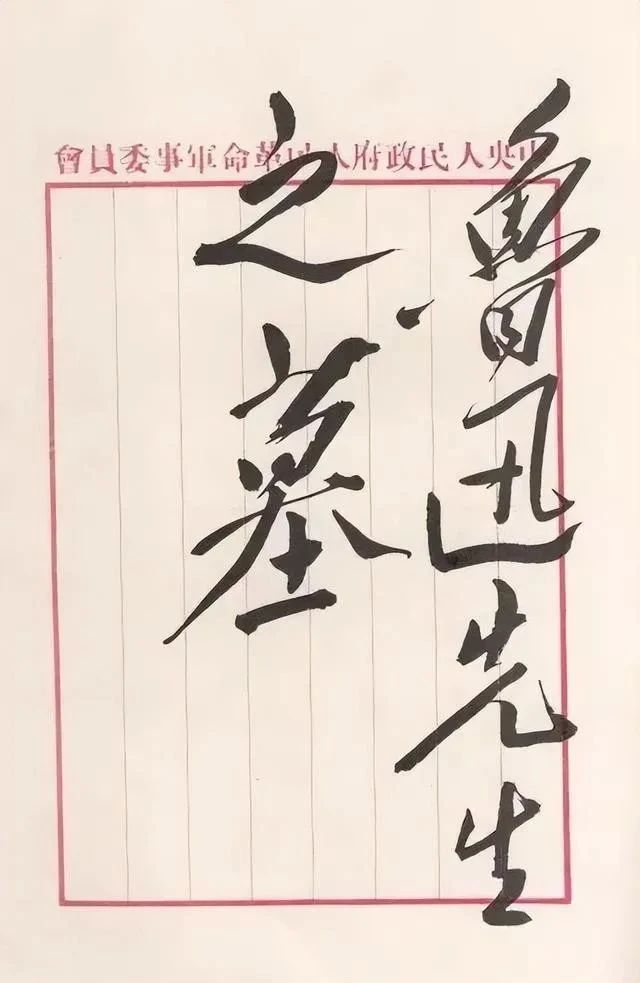 中央人民政府人民革命軍事委員會
魯迅先生
之墓